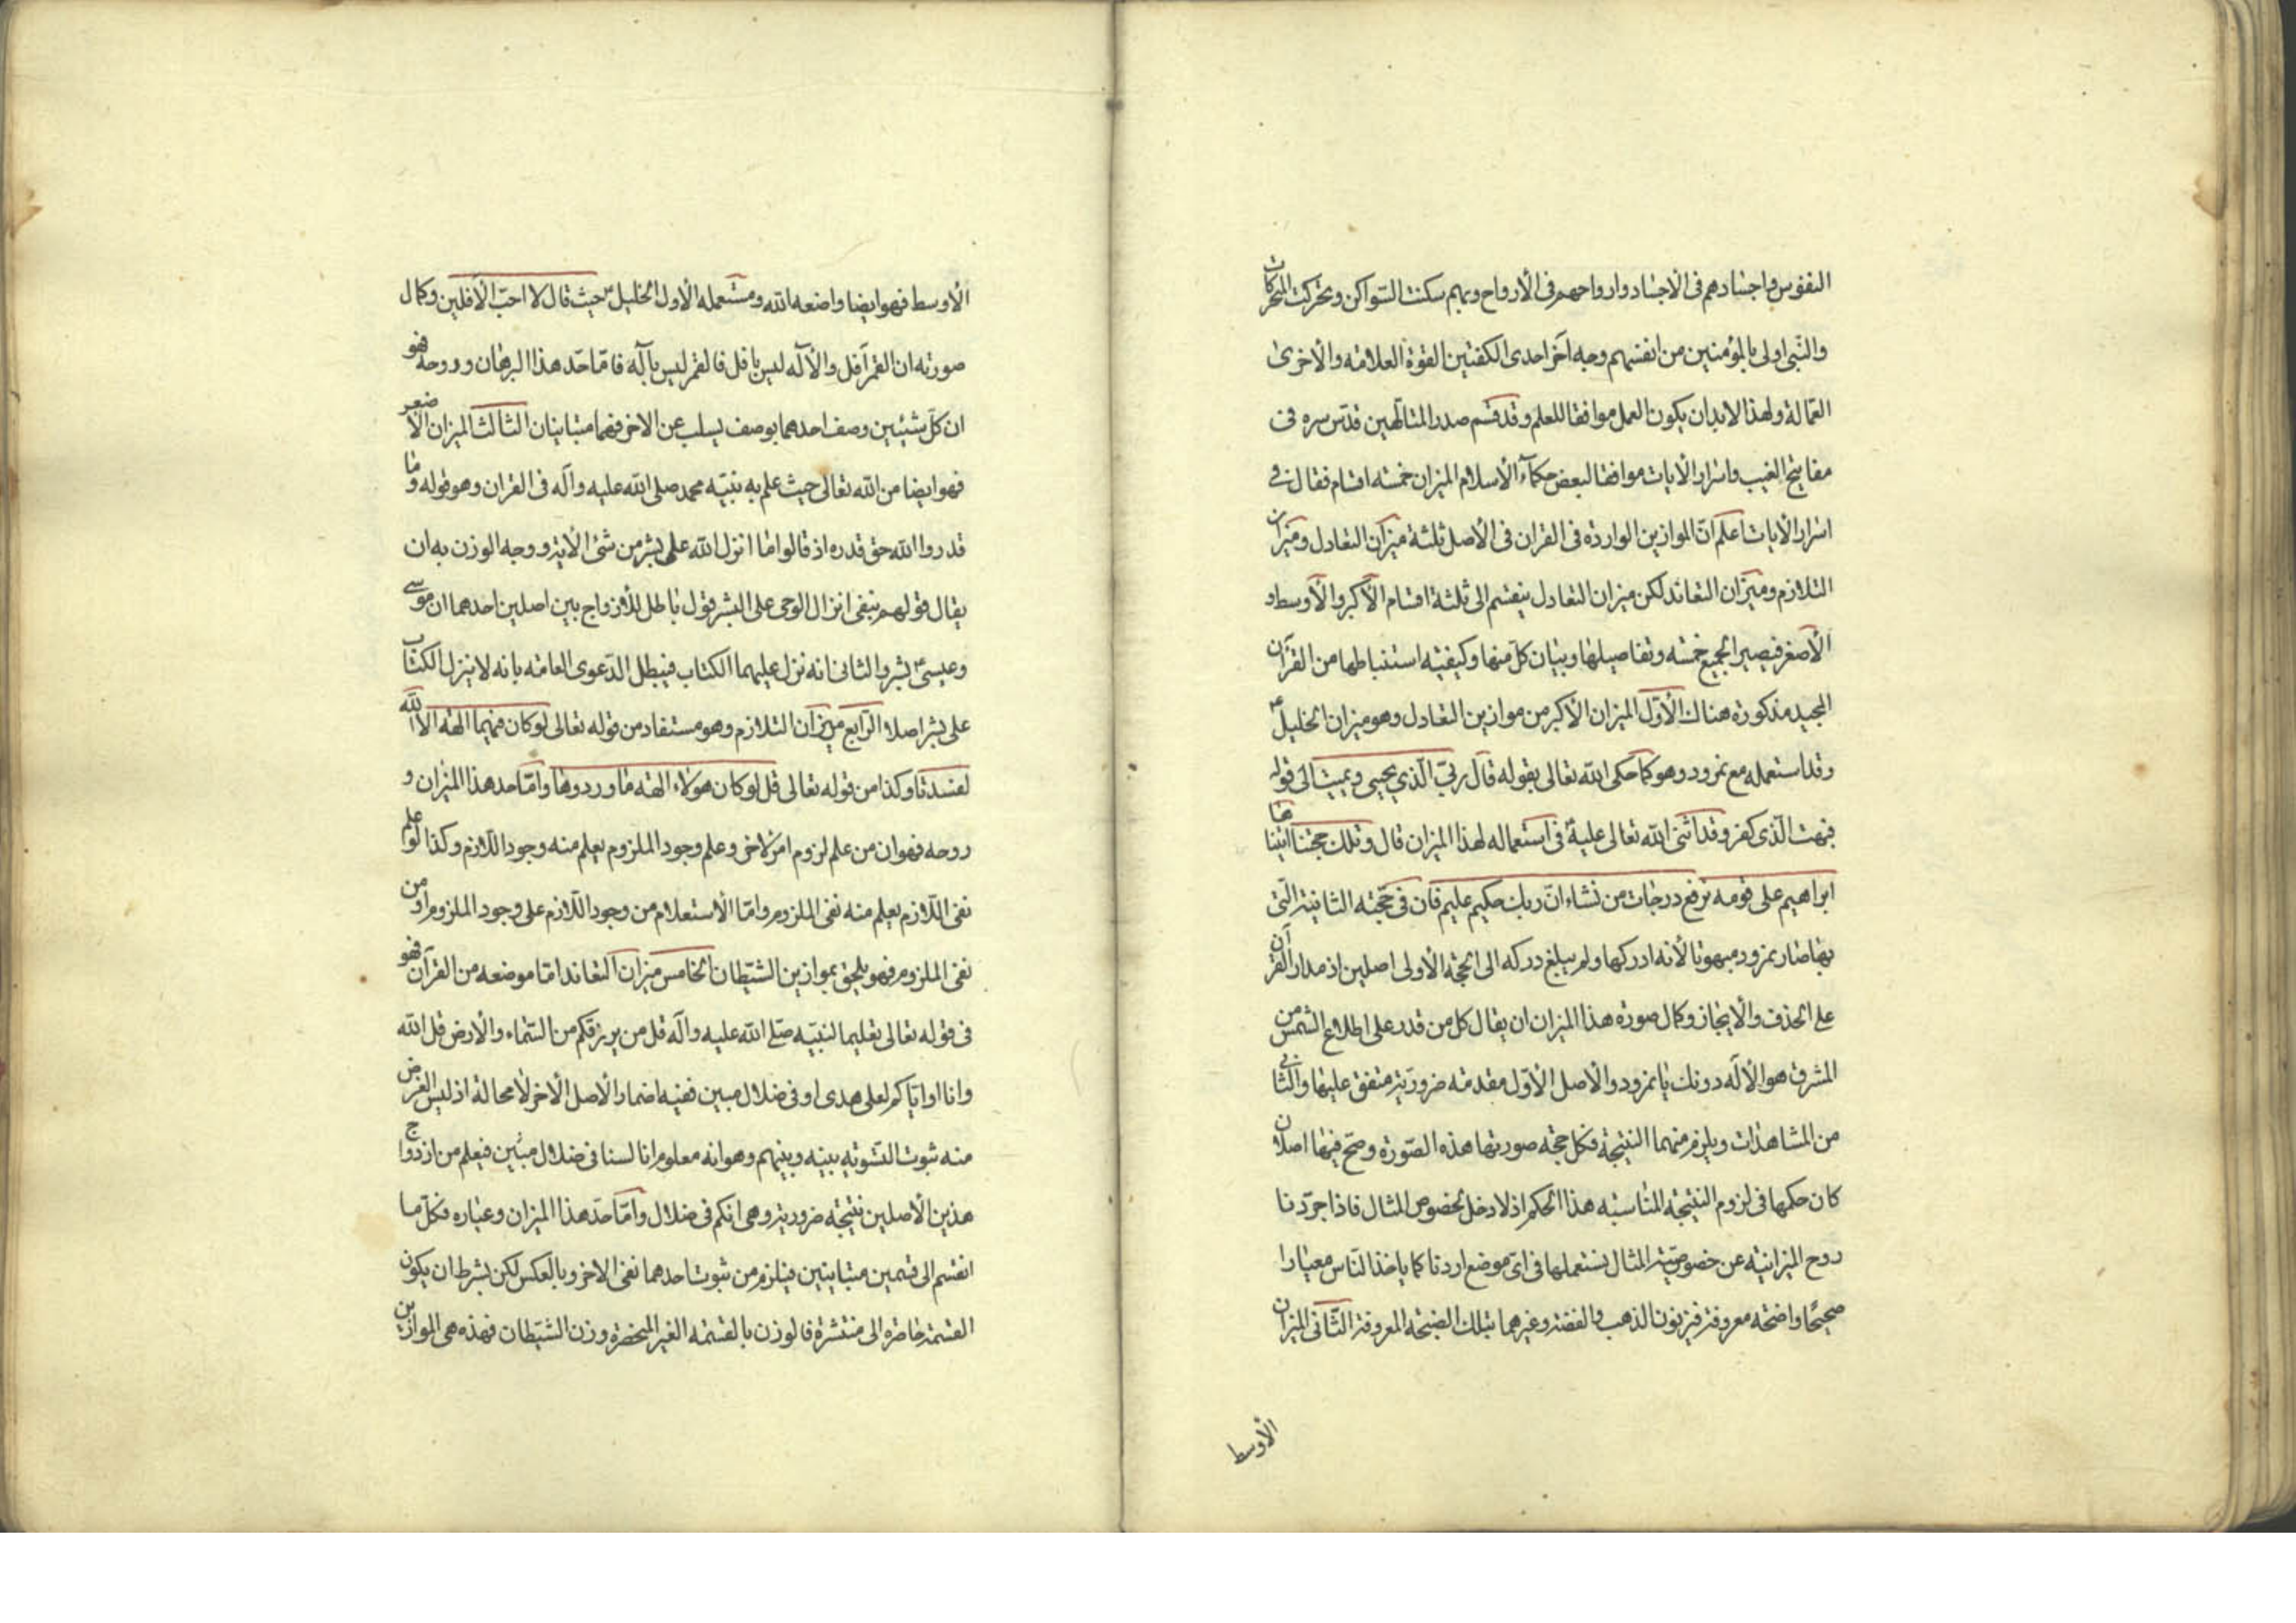 النفوس واجسادهم فى الأجساد وارواحهم فى الأرواح وبهم سكنت السواكن وتحركت المتحركات
والنبى اولى بالمؤمنين من انفسهم وجه آخر احدى الكفتين القوة العلامة والأخرى
العمالة ولهذا لابد ان يكون العمل موافقا للعلم وقد قسم صدر المتالهين قدس سره فى
مفاتيح الغيب واسرار الأيات موافقا لبعض حكماء الأسلام الميزان خمسه اقسام فقال فى
اسرار الأيات اعلم ان الموازين الواردة فى القران فى الأصل ثلثة ميزان التعادل وميزان
التلازم وميزان التعاند لكن ميزان التعادل ينقسم الى ثلثة اقسام الأكبر والأوسط و
الأصغر فيصير الجميع خمسه وتفاصيلها وبيان كل منها وكيفيه استنباطها من القرآن
المجيد مذكورة هناك الأول الميزان الأكبر من موازين التعادل وهو ميزان الخليل ع
وقد استعمله مع نمرود وهو كما حكى الله تعالى بقوله قال ربى الذي يحيى ويميت الى قوله
فبهت الذى كفر وقد اثنى الله تعالى عليه فى استعماله لهذا الميزان قال وتلك حجتنا اتيناها
ابراهيم على قومه نرفع درجات من نشاء ان ربك حكيم عليم فان فى حجته الثانية التى
بها صار نمرود مبهوتا لأنه ادركها ولم يبلغ دركه الى الحجة الأولى اصلين اذ مدار القرآن
على الحذف والأيجاز وكمال صورة هذا الميزان ان يقال كل من قدر على اطلاع الشمس من
المشرق هو الأله دونك يا نمرود والأصل الأول مقدمه ضرورية متفق عليها والثانى
من المشاهدات ويلزم منهما النتيجة فكل حجه صورتها هذه الصورة وصح فيها اصلان
كان حكمها فى لزوم النتيجة المناسبه هذا الحكم اذ لا دخل لخصوص المثال فاذا جردنا
روح الميزانيه عن خصوصية المثال نستعملها فى اى موضع اردنا كما ياخذ الناس معيارا
صحيحا وصنجة معروفة فيزنون الذهب والفضة وغيرهما بتلك الصنجة المعروفة الثانى الميزان
الأوسط
الأوسط فهو ايضا واضعه الله ومستعمله الأول الخليل ع حيث قال لا احب الأفلين وكمال
صورته ان القمر آفل والأله ليس بافل فالقمر ليس بآله فاما حد هذا البرهان وروحه فهو
ان كل شيئين وصف احدهما بوصف يسلب عن الاخر فهما متباينان الثالث الميزان الأصغر
فهو ايضا من الله تعالى حيث علم به نبيه محمد صلى الله عليه وآله فى القران وهو قوله وما
قدروا الله حق قدره اذ قالوا ما انزل الله على بشر من شئ الأية ووجه الوزن به ان
يقال قولهم بنفى انزال الوحى على البشر قول باطل للأزدواج بين اصلين احدهما ان موسى
وعيسى ع بشر والثانى انه نزل عليهما الكتاب فيبطل الدعوى العامه بانه لا ينزل الكتاب
على بشر اصلا الرابع ميزان التلازم وهو مستفاد من قوله تعالى لو كان فيهما الهة الا الله
لفسدتا وكذا من قوله تعالى قل لو كان هولاء الهة ما وردوها واما حد هذا الميزان و
روحه فهو ان من علم لزوم امر لاخر وعلم وجود الملزوم يعلم منه وجود اللازم وكذا لو علم
نفى اللازم يعلم منه نفى الملزوم واما الأستعلام من وجود اللازم على وجود الملزوم او من
نفى الملزوم فهو يلحق بموازين الشيطان الخامس ميزان التعاند اما موضعه من القرآن فهو
فى قوله تعالى تعليما لنبيه صلى الله عليه وآله قل من يرزقكم من السماء والأرض قل الله
وانا او اياكم لعلى هدى او فى ضلال مبين ففيه اضمار الأصل الأخر لا محالة اذ ليس الغرض
منه ثبوت التسويه بينه وبينهم وهو انه معلوم انا لسنا فى ضلال مبين فيعلم من ازدواج
هذين الأصلين نتيجة ضرورية وهى انكم فى ضلال واما حد هذا الميزان وعياره فكل ما
انقسم الى قسمين متباينين فيلزم من ثبوت احدهما نفى الاخر وبالعكس لكن بشرط ان يكون
القسمة حاصرة الى منتشرة فالوزن بالقسمة الغير المنحصرة وزن الشيطان فهذه هى الموازين